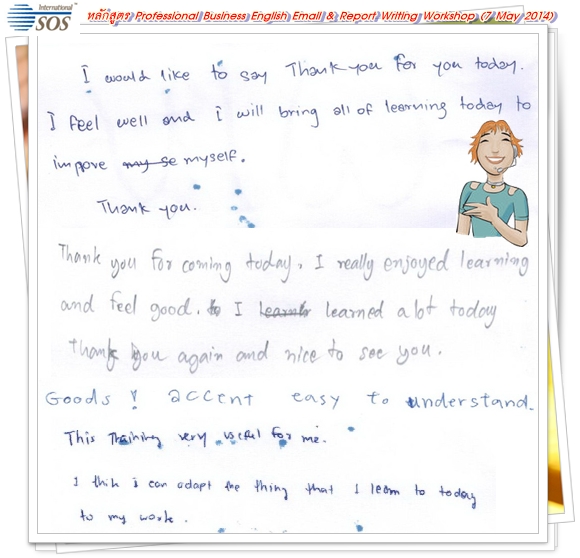 International
SOS
หลักสูตร Professional Business English Email & Report Writing Workshop (7 May 2014)
I would like to say Thank you for you today.
I feel well and i will bring all of learning today to
impove my se myself.
Thank you.
Thank you for coming today. I really enjoyed learning
and feel good. I learned a lot today
thank you again and nice to see you.
Goods ! accent easy to understand.
This Training very useful for me.
I thik i can adapt the thing that I learn to today
to my work.